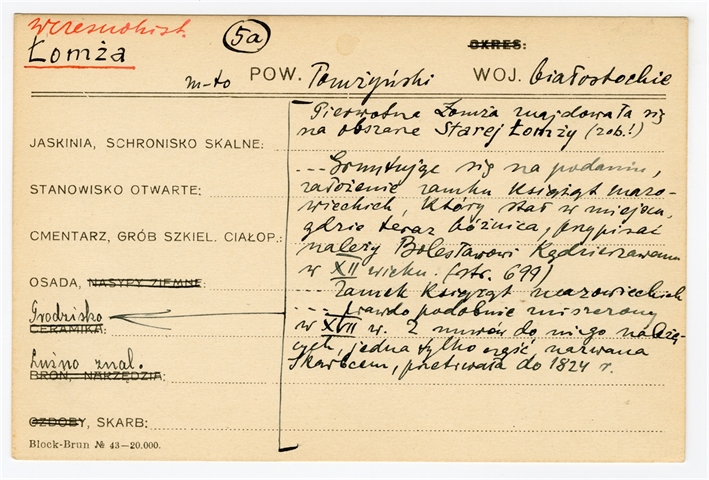 wczesnohist.
Łomża
5a
OKRES:
m-to POW. Łomżyński WOJ. białostockie
Pierwotna Łomża znajdowała się
na obszarze Starej Łomży (zob!)
JASKINIA, SCHRONISKO SKALNE:
--- Gruntując się na podaniu,
STANOWISKO OTWARTE:
założenie zamku książąt mazo-
wieckich, który stał w miejscu,
gdzie teraz bóżnica, przypisać
CMENTARZ, GRÓB SZKIEL. CIAŁOP.:
należy Bolesławowi Kędzierzawemu
w XII wieku. (str. 699)
OSADA, NASYPY ZIEMNE:
Zamek książąt mazowieckich
Grodzisko
--- prawdo podobnie niszczony
CERAMIKA:
w XVII w. Z murów do niego należą-
cych, jedna tylko część nazwana
Luźno znal.
Skarbcem, przetrwała do 1824 r.
BROŃ, NARZĘDZIA:
OZDOBY, SKARB:
Block-Brun № 43—20.000.